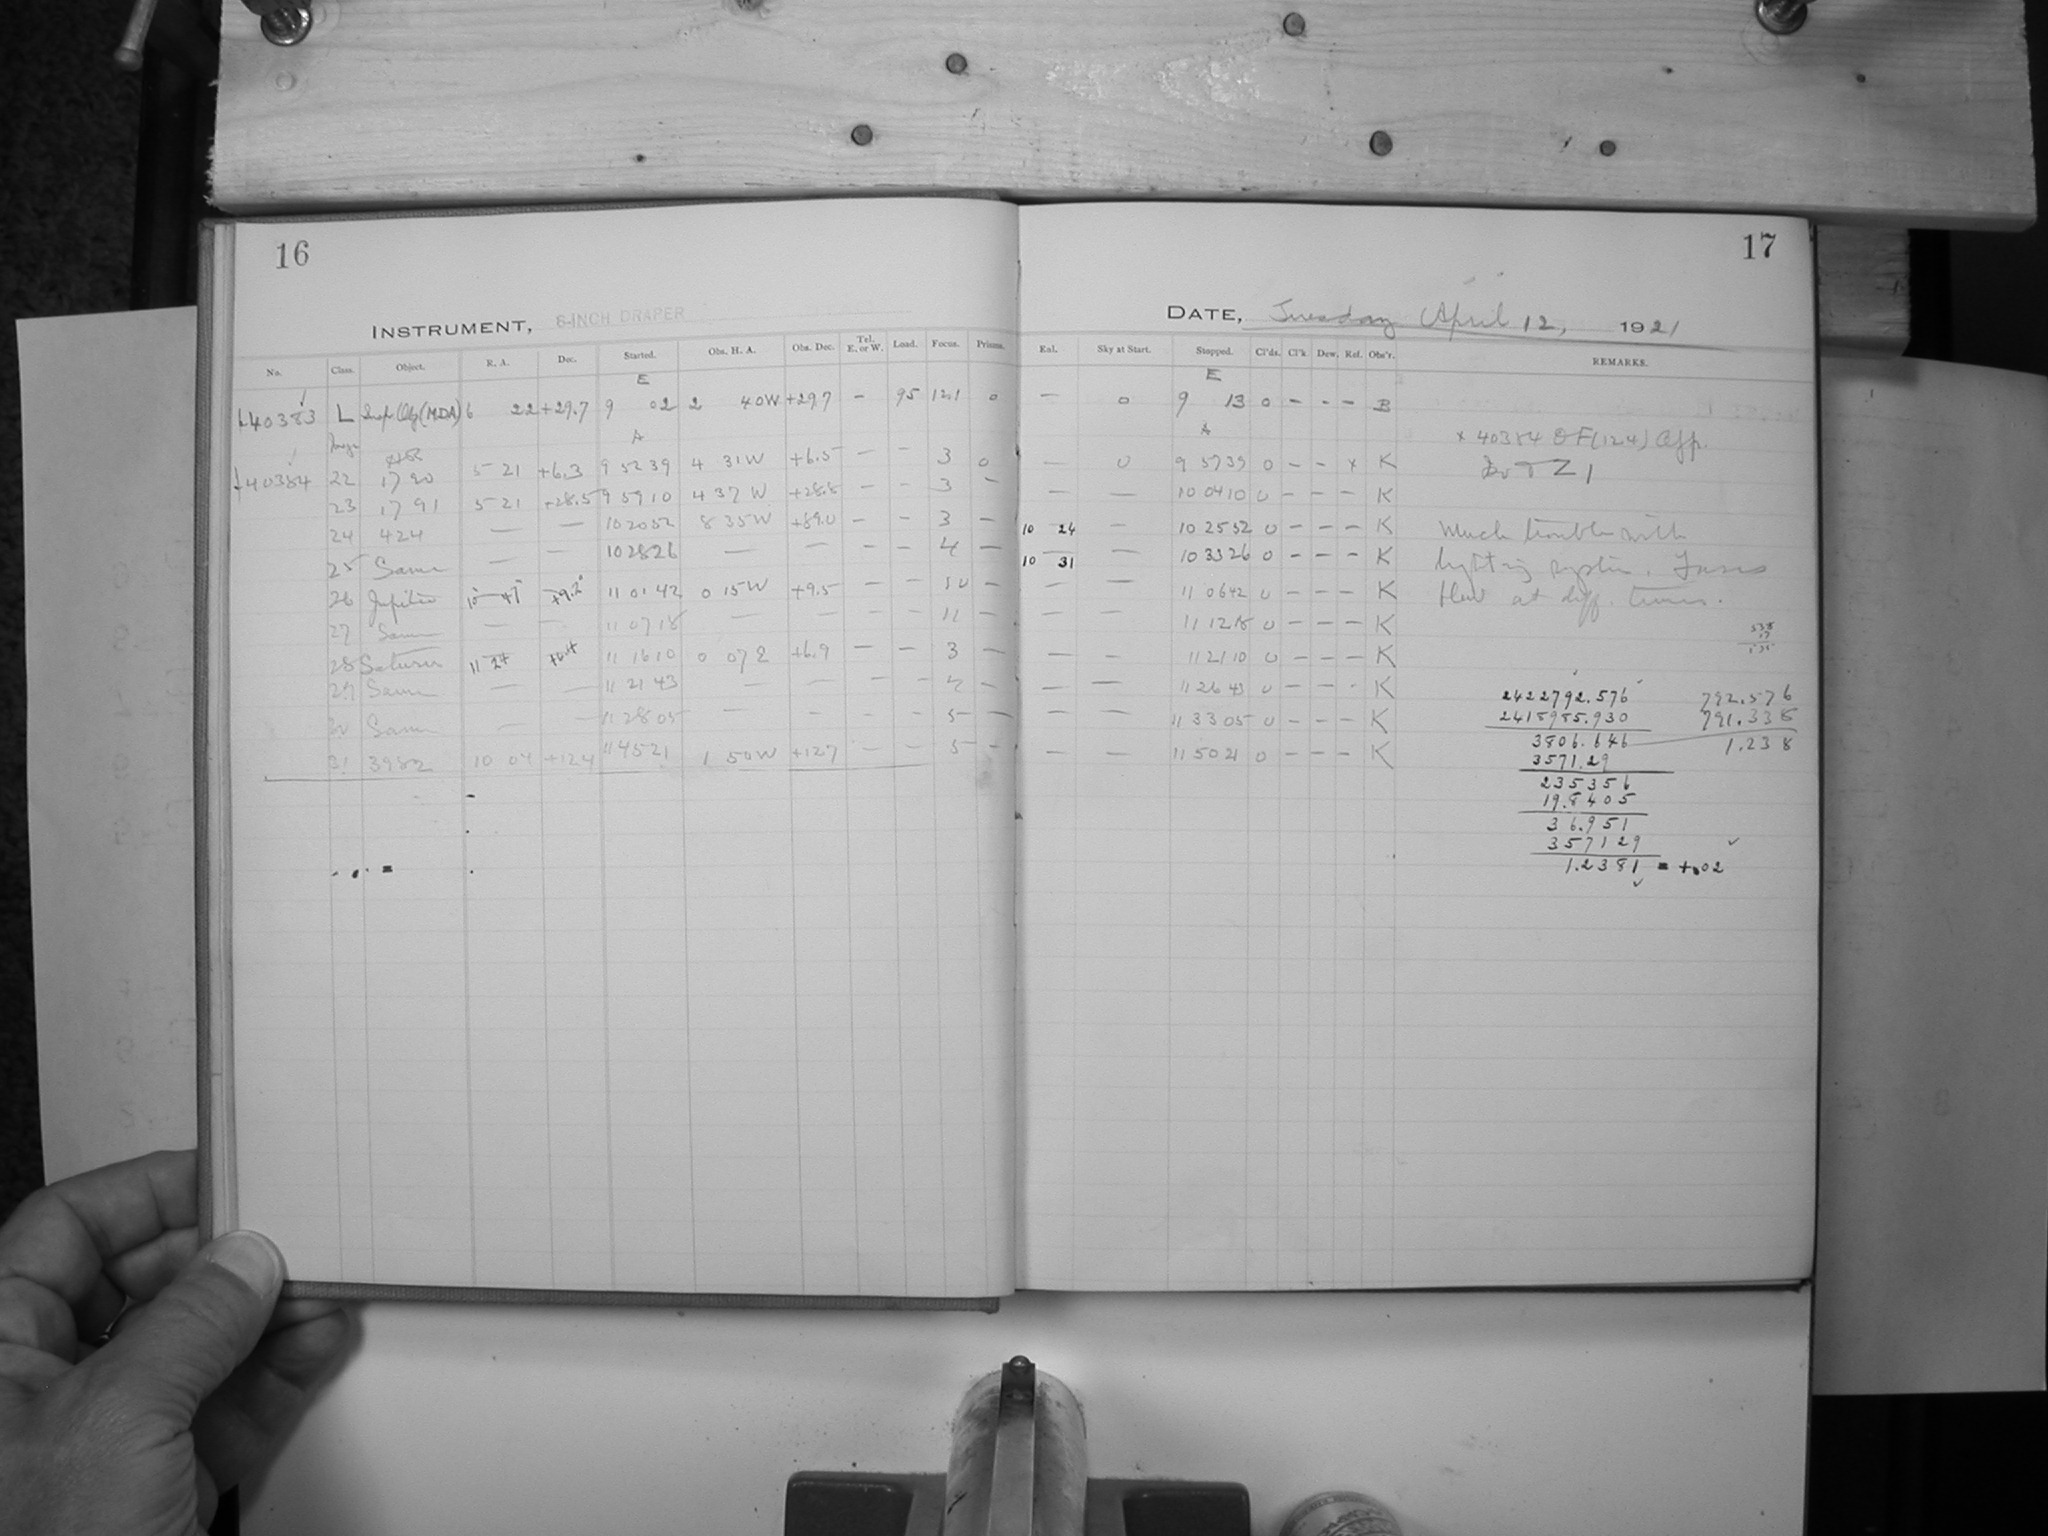 16
INSTRUMENT, 8-INCH DRAPER
No. Class. Object. R. A. Dec. Started. Obs. H. A. Obs. Dec. Tel. E. or W. Load. Focus. Prisms.
E
40383 L (MDA) 6 22 +29.7 9 02 2 40W +29.7 — 95 12.1 0
A
40384 22 1790 5 21 +6.3 9 52 39 4 31W +6.5 — — 3 0
23 1791 5 21 +28.5 9 59 10 4 37W +28.8 — — 3 —
24 424 — — 10 20 52 8 35W +89.0 — — 3 —
25 Same — — 10 28 26 — — — — 4 —
26 Jupiter +9.2 11 01 42 0 15W +9.5 — — 10 —
27 Same — — 11 07 18 — — — — 11 —
28 Saturn 11 24 11 16 10 0 07E +6.9 — — 3 —
29 Same — — 11 21 43 — — — — —
30 Same — — 11 28 05 — — — — 5 —
31 3982 10 04 +12.4 11 45 21 1 50W +12.7 — — 5 —
17
DATE, Tuesday April 12, 1921
Rnl. Sky at Start. Stopped. Cl'ds. Cl'k. Dew. Ref. Obs'r. REMARKS.
E
— 0 9 13 0 — — — B
A
— 0 9 57 39 0 — — x K
— — 10 04 10 0 — — — K
10 24 — 10 25 52 0 — — — K
10 31 — 10 33 26 0 — — — K
— — 11 06 42 0 — — — K
— — 11 12 18 0 — — — K
— — 11 21 10 0 — — — K
— — 11 26 43 0 — — - K
— — 11 33 05 0 — — — K
— — 11 50 21 0 — — — K
x 40384 (12.4)
Z 1
Much trouble with
lighting system. Fuses
blew at diff. times.
2422792.576 792.576
2418985.930 791.338
3806.646 1.238
3571.29
235356
19.8405
36.951
357129
1.2381 = +.02